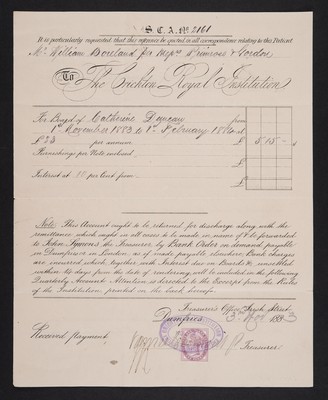 S.C.A. No 2161
It is particularly requested that this reference be quoted in all correspondence relating to this Patient
Mr William Boreland for Messrs Primrose & Gordon
To The Crichton Royal Institution
For Board of Catherine from
1st November 1883 to 1st February 1884 at
£23 per annum £ 5 15 -
Furnishings per Note enclosed £
Interest at 10 per Cent from £
£
Note: This Account ought to be returned for discharge along with the
remittance which ought in all cases to be made in name of & be forwarded
to John Symons the Treasurer by Bank Order on demand payable
in Dumfries or London. as if made payable elsewhere Bank charges
are incurred which together with Interest due on Boards &c. unsettled
within 14 days from the date of rendering will be included in the following
Quarterly Account. Attention is directed to the Excerpt from the Rules
of the Institution printed on the back hereof.
Treasurer's Office Street
Dumfries 3 1883
Received Payment
Treasurer